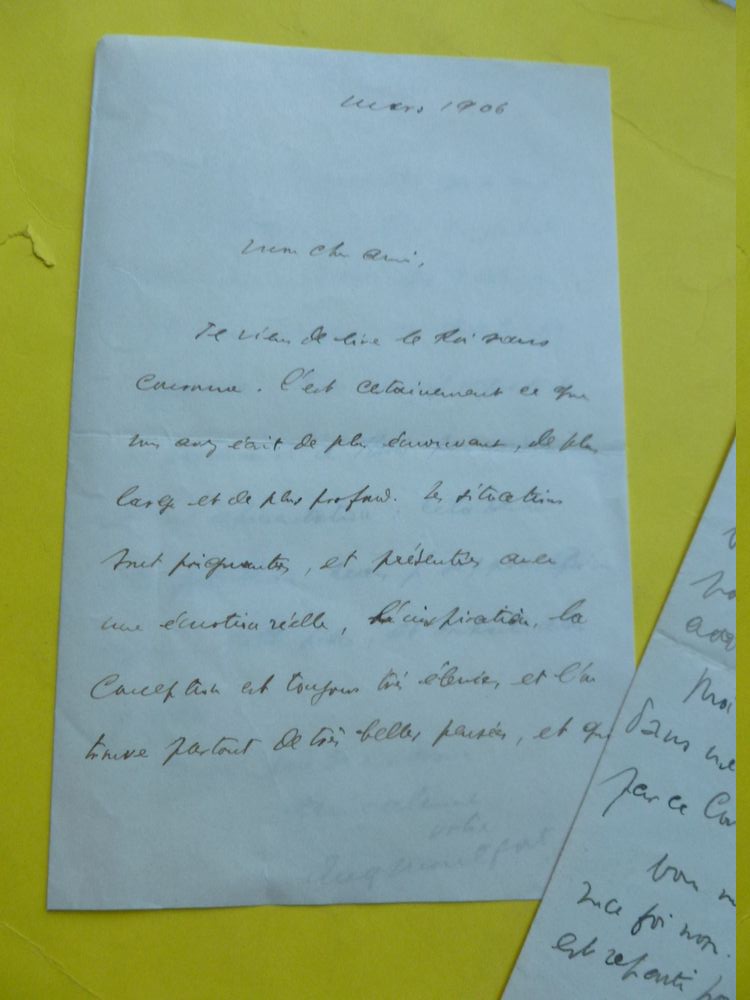 mars 1906
mon cher ami,
Je viens de lire le Roi sans
Couronne. C'est certainement ce que
vous avez écrit de plus émouvant, de plus
large et de plus profond. Les situations
sont poignantes, et présentées avec
une émotion réelle, l'inspiration, la
Conception est toujours très élevée, et l'on
trouve partout de très belles pensées, et qu
votre
Moi
Dans
par ce
bon
ma foi non.
est reparti